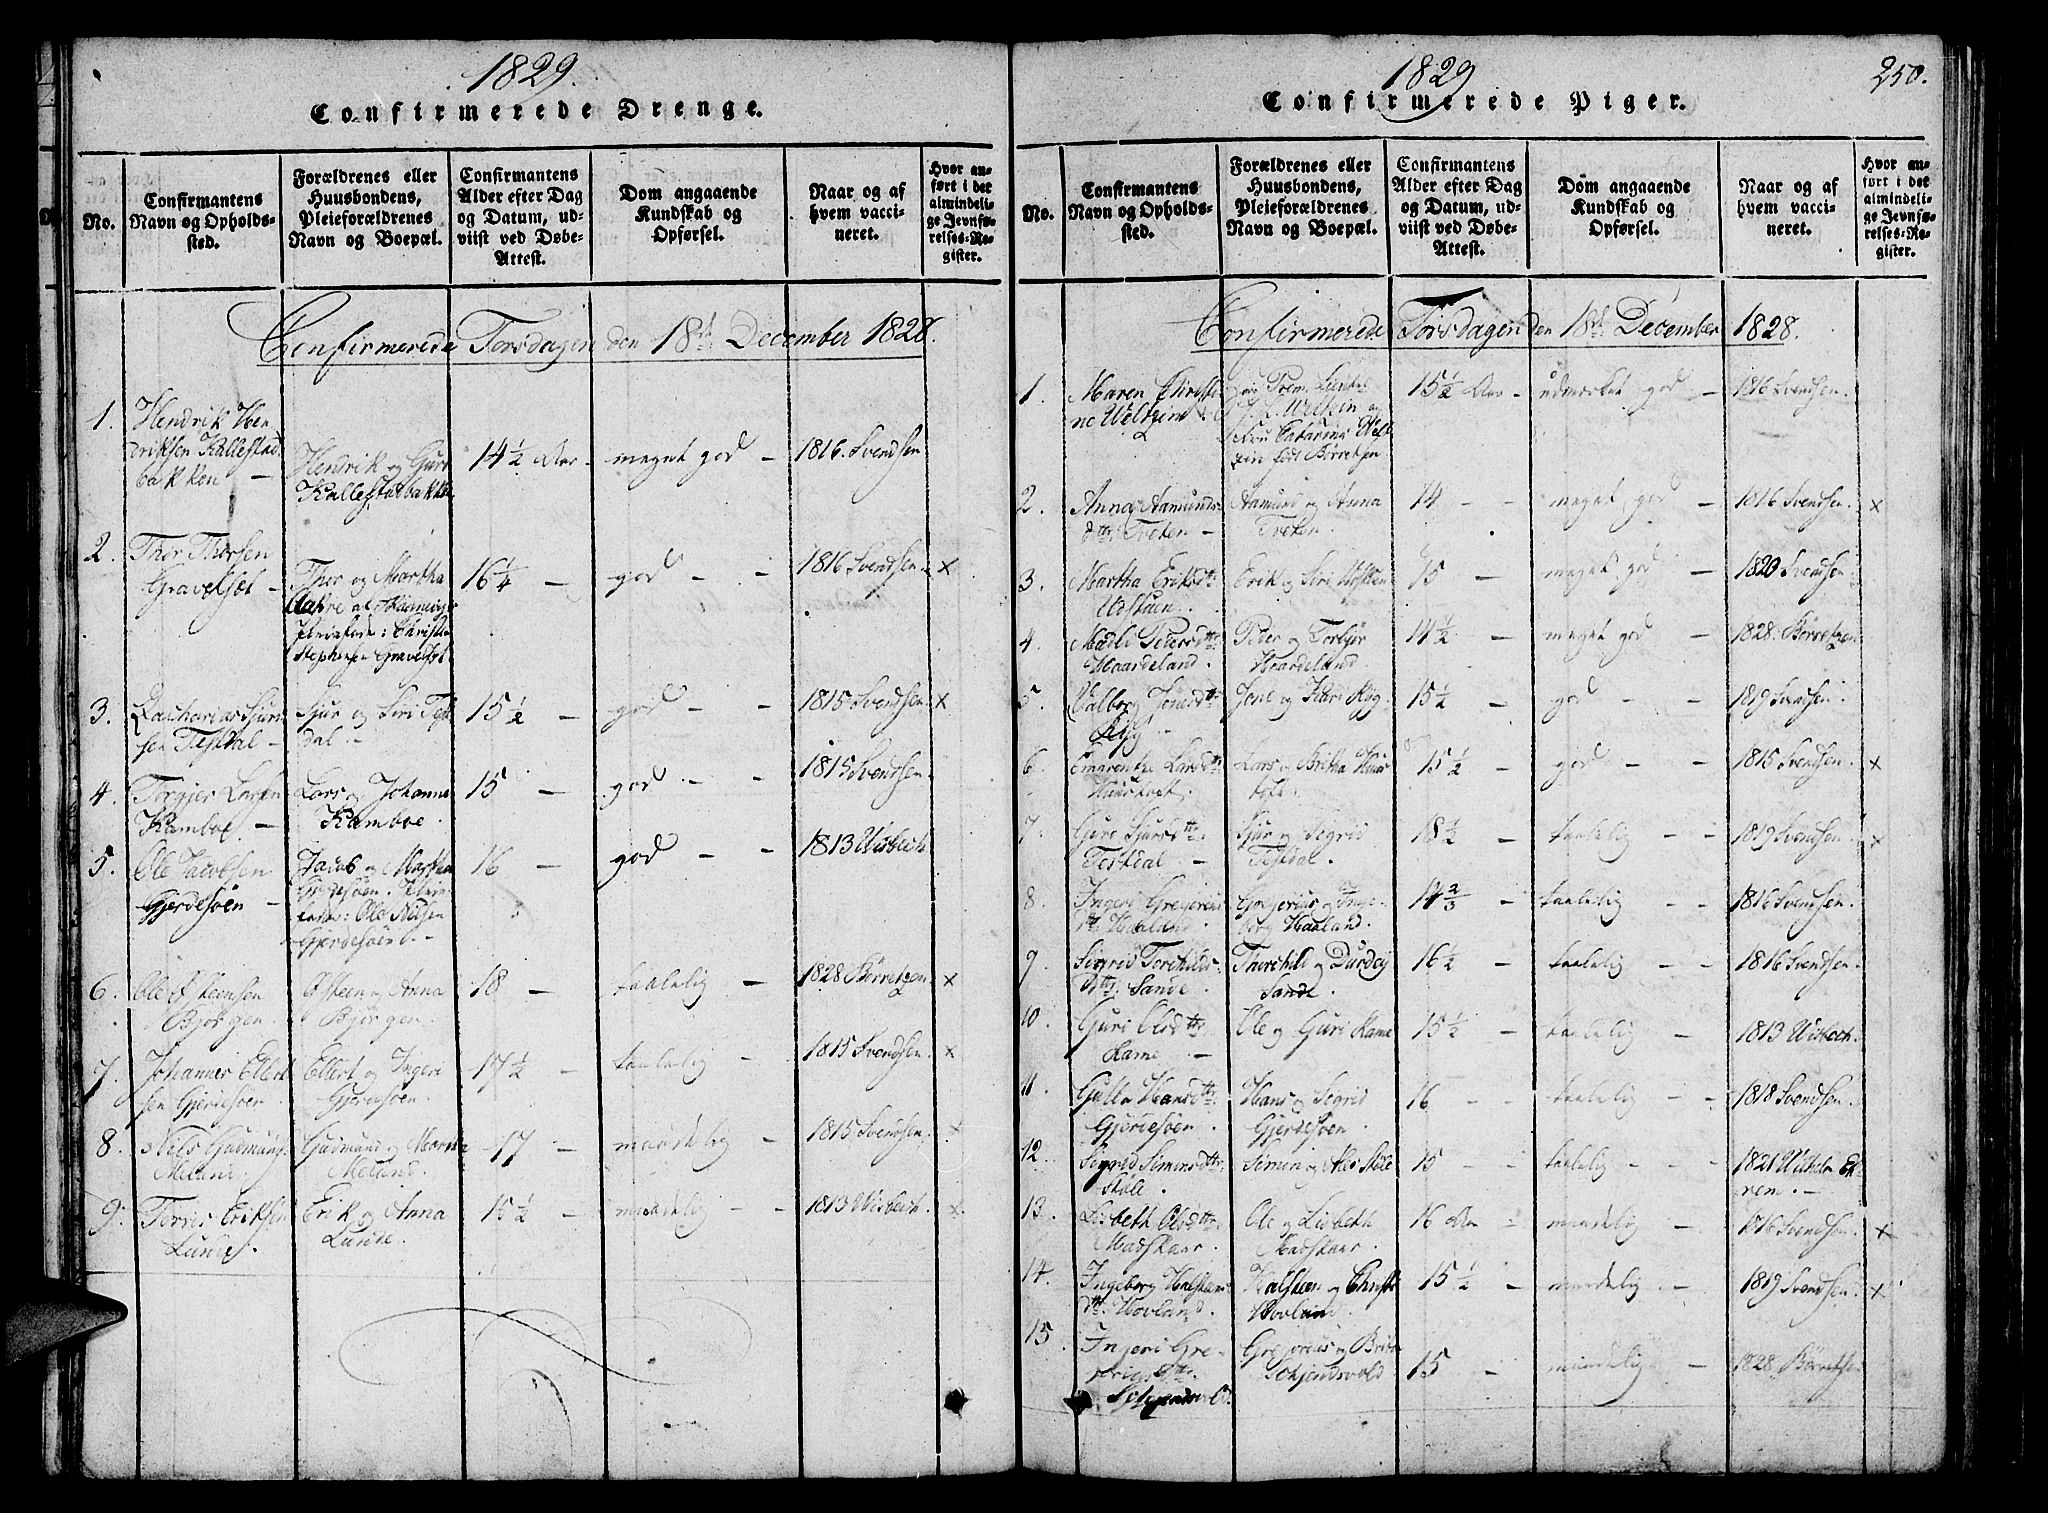 1829.
Confirmerede Drenge.
No.
Confirmantens
Navn og Opholds-
sted.
Forældrenes eller
Huusbondens,
Pleieforældrenes
Navn og Boepæl.
Confirmantens
Alder efter Dag
og Datum, ud-
viist ved Døbe-
Attest.
Dom angaaende
Kundskab og
Opførsel.
Naar og af
hvem vacci-
neret.
Hvor an-
ført i det
almindeli-
ge Jevnfø-
relses-Re-
gister.
Confirmerede Torsdagen den 18de December 1828.
1.
Hendrik Hen
driksen Kallestad
bakken —
Hendrik og Guri
Kallestadbakken
14 1/2 Aar - meget god — 1816. Svendsen
2.
Thor Thorsen
Gravelsæt —
Thor og Martha
Aakre af Skaanevig
Pleiefader: Christen
Stephensen Gravelsæt
16 1/4 — god — — 1816 Svendsen - x
3.
Zacharias Sjur
sen Tesdal —
Sjur og Siri Tes
dal. —
15 1/2 — god — — 1815 Svendsen x
4.
Torgjer Larsen
Kamboe. —
Lars og Johanne
Kamboe.
15 — god — — 1815 Svendsen.
5.
Ole Jacobsen
Gjerdesøen —
Jacob og Martha
Gjerdesøen. Pleie
fader: Ole Nilsen
Gjerdesøen. —
16 — god — — 1813 Wisbech
6.
Ole Østeensen
Bjørgen.
Østeen og Anna
Bjørgen.
18 — taalelig — 1828 Børretzen x
7.
Johannes Ellert
sen Gjerdesøen
Ellert og Ingeri
Gjerdesøen.
17 1/2 — taalelig — 1815 Svendsen. x
8.
Nils Gudmunds
Meland.
Gudmund og Martha
Meland.
17 — maadelig — 1815 Svendsen. x
9.
Torris Eriksen
Lunde.
Erik og Anna
Lunde.
15 1/2 — maadelig — — 1813 Wisbech. x
1829
250.
Confirmerede Piger.
No.
Confirmantens
Navn og Opholds-
sted.
Forældrenes eller
Huusbondens,
Pleieforældrenes
Navn og Boepæl.
Confirmantens
Alder efter Dag
og Datum, ud-
viist ved Døbe-
Attest.
Dom angaaende
Kundskab og
Opførsel.
Naar og af
hvem vacci-
neret.
Hvor an-
ført i det
almindelig-
ge Jevnfø-
relses-Re-
gister.
Confirmerede Torsdagen den 18de December 1828.
1.
Maren Christi
ne Weltzin
Prem. Lieut.
Weltzin og
Catarina Welt
zin født Børretsen
15 1/2 Aar - udmærket god — 1816 Svendsen
2.
Anna Aamunds
dttr. Tveten —
Aamund og Anna
Tveten.
14 — — meget god — 1816 Svendsen x
3.
Martha Eriksdttr.
Udstuen.
Erik og Siri
15 — meget god — 1820 Svendsen.
4.
Madli Pedersdttr.
Haardeland.
Peder og Torbjør
Haardeland
14 1/2 — meget god — 1828. Børretzen
5.
Valborg Jonesdttr.
Røg. —
Jone og Kari Røg.
15 1/2 — god — — 1819 Svendsen.
6.
Emarentze Larsdttr.
Huustoft.
Lars og Britha Huus
toft.
15 1/2 — god — — 1815 Svendsen. x
7.
Guro Sjursdttr.
Tesdal —
Sjur og Segrid
Tesdal.
18 1/2 — taalelig — — 1819 Svendsen. x
8.
Ingeri Gregorius
dttr. Haaland
Gregorius og Inge
borg Haaland.
14 2/3 — taalelig — — 1816 Svendsen.
9.
Sigrid Torkilds
dttr. Sande.
Thorkild og Durdey
Sande.
16 1/2 — taalelig — — 1816 Svendsen.
10.
Guri Olsdttr.
Kame —
Ole og Guri Kame
15 1/2 — taalelig — 1813 Wisbech.
11.
Golla Hansdttr.
Gjerdesøen
Hans og Segrid
Gjerdesøen.
16 — — taalelig — — 1818 Svendsen.
12.
Sigrid Simonsdttr.
Støle.
Simon og Støle
15 — — taalelig — — 1821 Wilhelm Ek
rem. —
13.
Lisbeth Olsdttr.
Madskaar.
Ole og Lisbeth
Madskaar.
16 Aar - maadelig — 1816 Svendsen. x
14.
Ingeborg Halsteens
dttr. Hovland.
Halsteen og Christi
Hovland
15 1/2 — maadelig — 1819 Svendsen. x
15.
Ingeri Gre-
goriusdttr.
Skjensvold.
Gregorius og Britha
Skjensvold
15 — maadelig — 1828 Børretsen